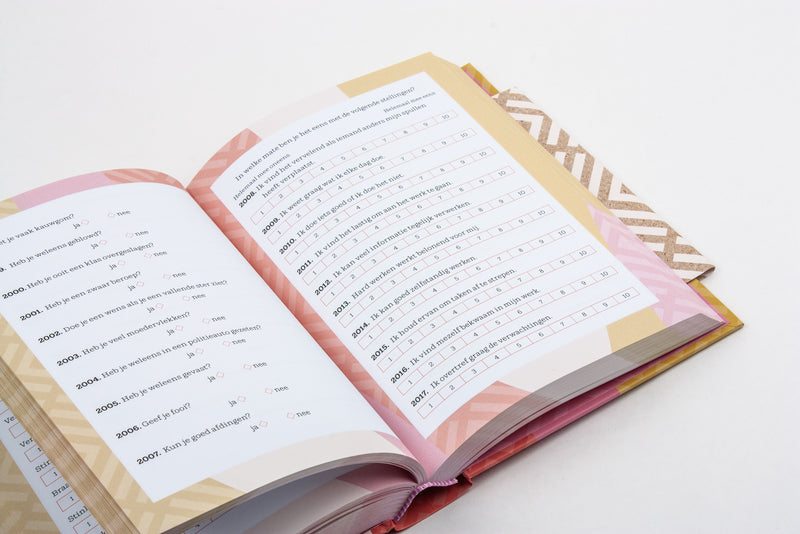 je vaak kauwgom?
ja nee
Heb je weleens geblowd?
ja nee
2000. Heb je ooit een klas overgeslagen?
ja nee
2001. Heb je een zwaar beroep?
ja nee
2002. Doe je een wens als je een vallende ster ziet?
ja nee
2003. Heb je veel moedervlekken?
ja nee
2004. Heb je weleens in een politieauto gezeten?
ja nee
2005. Heb je weleens gevast?
ja nee
2006. Geef je fooi?
ja nee
2007. Kun je goed afdingen?
ja nee
In welke mate ben je het eens met de volgende stellingen?
Helemaal mee oneens Helemaal mee eens
2008. Ik vind het vervelend als iemand anders mijn spullen
heeft verplaatst.
1 2 3 4 5 6 7 8 9 10
2009. Ik weet graag wat ik elke dag doe.
1 2 3 4 5 6 7 8 9 10
2010. Ik doe iets goed of ik doe het niet.
1 2 3 4 5 6 7 8 9 10
2011. Ik vind het lastig om aan het werk te gaan.
1 2 3 4 5 6 7 8 9 10
2012. Ik kan veel informatie tegelijk verwerken.
1 2 3 4 5 6 7 8 9 10
2013. Hard werken werkt belonend voor mij.
1 2 3 4 5 6 7 8 9 10
2014. Ik kan goed zelfstandig werken.
1 2 3 4 5 6 7 8 9 10
2015. Ik houd ervan om taken af te strepen.
1 2 3 4 5 6 7 8 9 10
2016. Ik vind mezelf bekwaam in mijn werk.
1 2 3 4 5 6 7 8 9 10
2017. Ik overtref graag de verwachtingen.
1 2 3